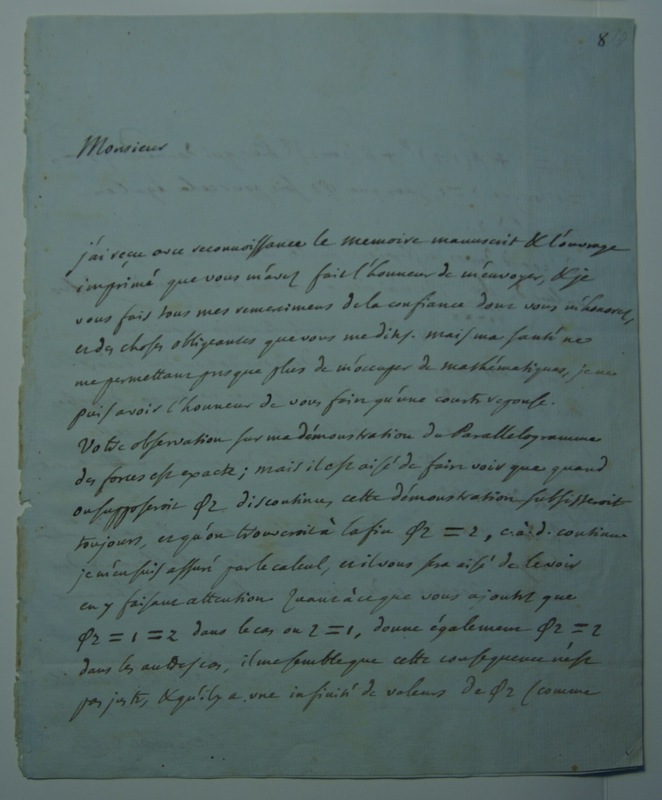 8
Monsieur
j'ai reçu avec reconnoissance le memoire manuscrit & l'ouvrage
imprimé que vous m'avez fait l'honneur de m'envoyer, & je
vous fais tous mes remercimens de la confiance dont vous m'honorez,
et des choses obligeantes que vous me dites. mais ma santé ne
me permettant presque plus de m'occuper de mathématiques, je ne
puis avoir l'honneur de vous faire qu'une courte reponse.
Votre observation sur ma démonstration du Parallelogramme
des forces est exacte; mais il est aisé de faire voir que quand
on supposeroit φz discontinue, cette démonstration subsisteroit
toujours, et qu'on trouveroit à la fin φz = z, c. à. d. continue.
je m'en suis assuré par le calcul, et il vous sera aisé de le voir
en y faisant attention. Quant à ce que vous ajoutez que
φz = 1 = z dans le cas où z = 1, donne également φz = z
dans les autres cas, il me semble que cette consequence n'est
pas juste, & qu'il y a une infinité de valeurs de φz (comme